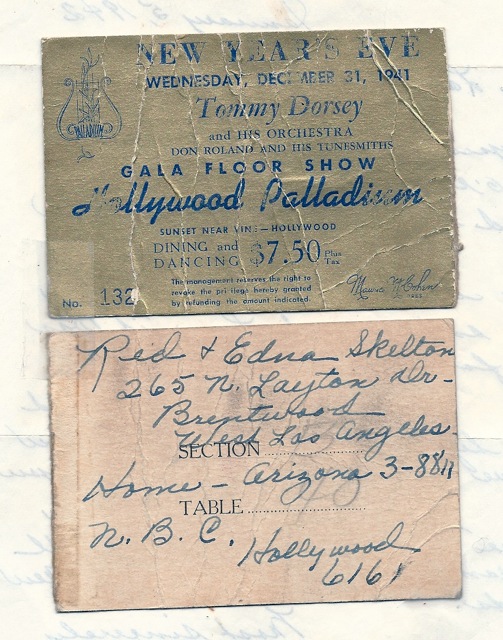 January 5, 1942
NEW YEAR'S EVE
WEDNESDAY, DECEMBER 31, 1941
PALLADIUM
Tommy Dorsey
and HIS ORCHESTRA
DON ROLAND AND HIS TUNESMITHS
GALA FLOOR SHOW
Hollywood Palladium
SUNSET NEAR VINE—HOLLYWOOD
DINING and
DANCING $7.50 Plus Tax
The management reserves the right to
revoke the privilege hereby granted
by refunding the amount indicated.
Maurice M. Cohen
PRES.
No. 132
Red & Edna Skelton
265 N. Layton Dr-
Brentwood
West Los Angeles
SECTION
Home - Arizona 3-8811
TABLE
N.B.C. Hollywood
6161
Most sincerely